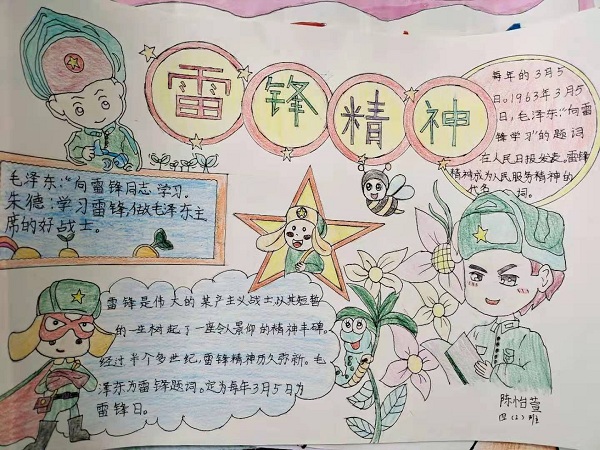 雷锋精神
每年的3月5
日。1963年3月5
日，毛泽东:“向雷
锋学习”的题词
在人民日报发表。雷锋
精神成为人民服务精神的
代名词。
毛泽东:“向雷锋同志学习。
朱德:学习雷锋,做毛泽东主
席的好战士。
雷锋是伟大的某产主义战士,以其短暂
的一生树起了一座令人景仰的精神丰碑。
经过半个多世纪,雷锋精神历久弥新。毛
泽东为雷锋题词。定为每年3月5日为
雷锋日。
陈怡萱
四(2)班